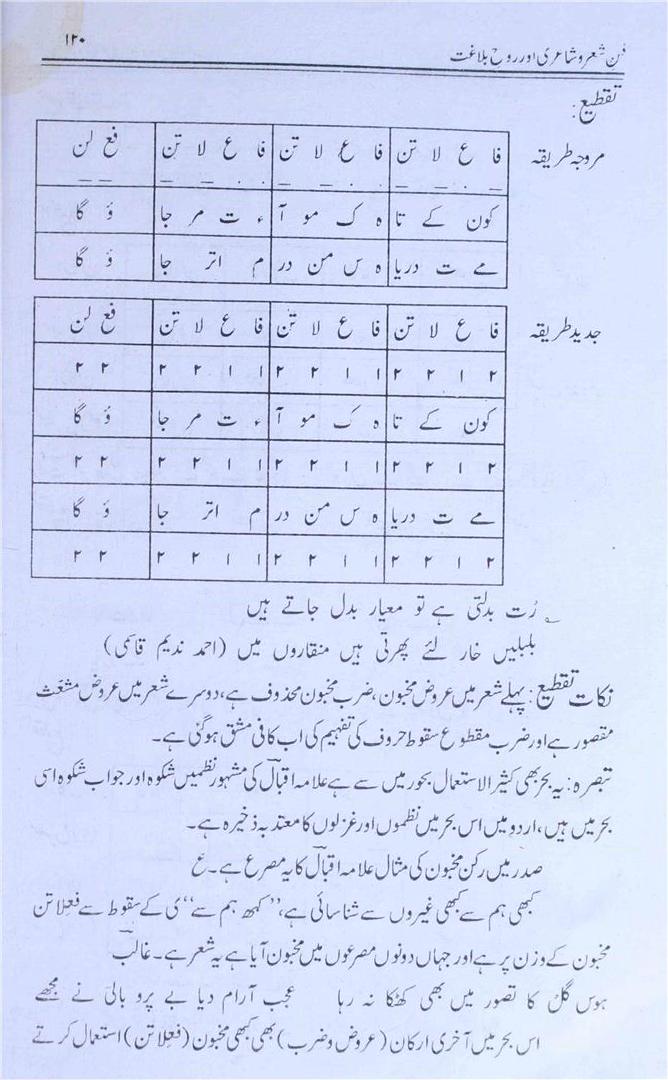 فن شعر و شاعری اور روح بلاغت
۱۲۰
تقطیع:
مروجہ طریقہ
فا ع لا تن فا ع لا تن فا ع لا تن فع لن
_ . _ _ . . _ _ . . _ _ _ _
کون کے تا ہ ک مو آ ء ت مر جا ؤ گا
مے ت دریا ہ س من در م اتر جا ؤ گا
جدید طریقہ
فا ع لا تن فا ع لا تن فا ع لا تن فع لن
۲ ۱ ۲ ۲ ۱ ۱ ۲ ۲ ۱ ۱ ۲ ۲ ۲ ۲
کون کے تا ہ ک مو آ ء ت مر جا ؤ گا
۲ ۱ ۲ ۲ ۱ ۱ ۲ ۲ ۱ ۱ ۲ ۲ ۲ ۲
مے ت دریا ہ س من در م اتر جا ؤ گا
۲ ۱ ۲ ۲ ۱ ۱ ۲ ۲ ۱ ۱ ۲ ۲ ۲ ۲
؎ رُت بدلتی ہے تو معیار بدل جاتے ہیں
بلبلیں خار لئے پھرتی ہیں منقاروں میں (احمد ندیم قاسمی)
نکات تقطیع: پہلے شعر میں عروض مخبون، ضرب مخبون محذوف ہے، دوسرے شعر میں عروض مشعث
مقصور ہے اور ضرب مقطوع سقوط حروف کی تفہیم کی اب کافی مشق ہوگئی ہے۔
تبصرہ: یہ بحر بھی کثیر الاستعمال بحور میں سے ہے علامہ اقبالؔ کی مشہور نظمیں شکوہ اور جواب شکوہ اسی
بحر میں ہیں، اردو میں اس بحر میں نظموں اور غزلوں کا معتد بہ ذخیرہ ہے۔
صدر میں رکن مخبون کی مثال علامہ اقبالؔ کا یہ مصرع ہے۔ ع
کبھی ہم سے کبھی غیروں سے شناسائی ہے، ”کبھ ہم سے“ ی کے سقوط سے فعِلاتن
مخبون کے وزن پر ہے اور جہاں دونوں مصرعوں میں مخبون آیا ہے یہ شعر ہے۔ غالبؔ
ہوس گل کا تصور میں بھی کھٹکا نہ رہا عجب آرام دیا بے پرو بالی نے مجھے
اس بحر میں آخری ارکان (عروض و ضرب) بھی کبھی مخبون (فعِلاتن) استعمال کرتے